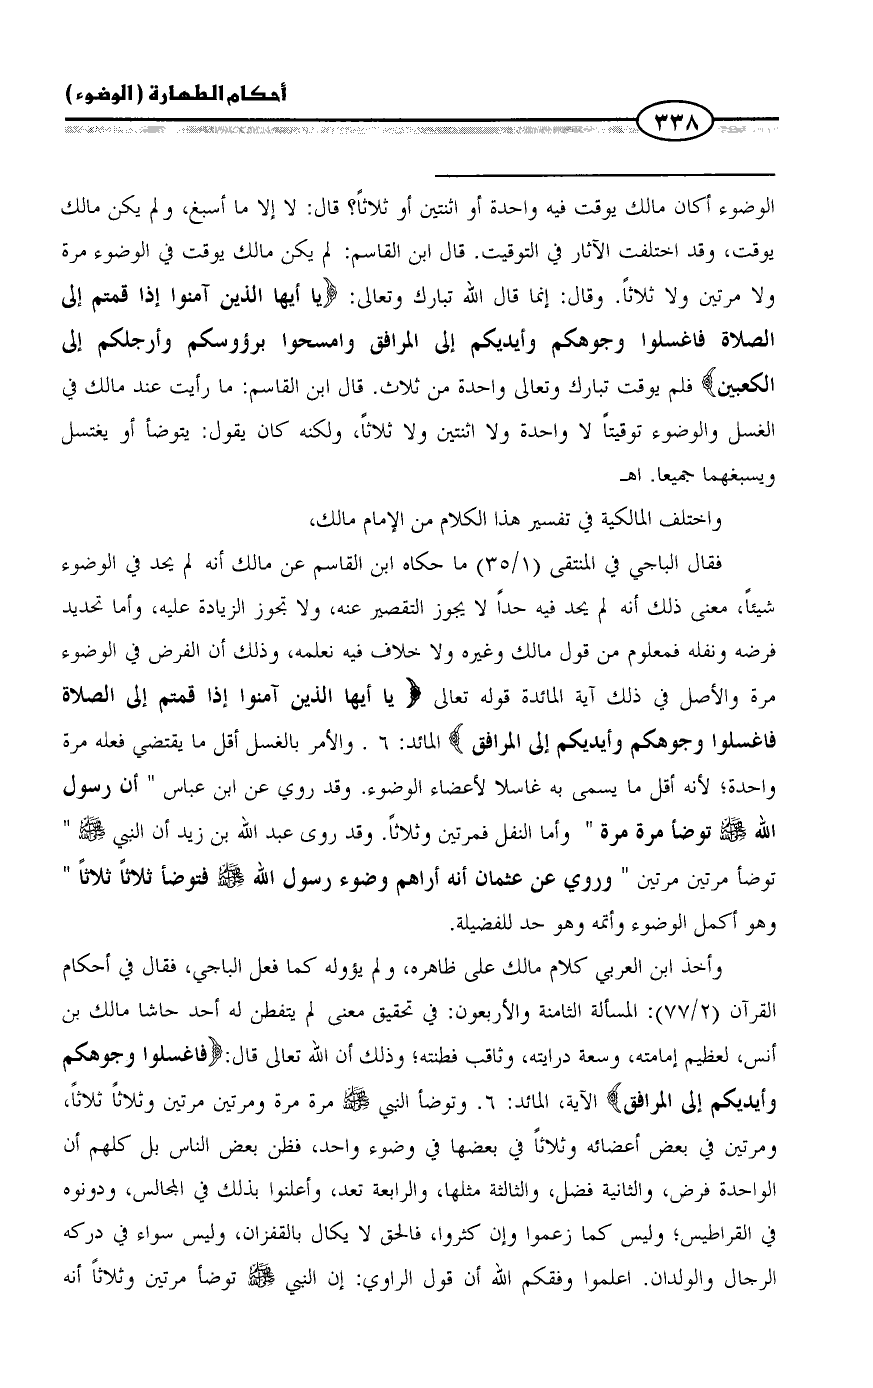 أحكام الطهارة (الوضوء)
٣٣٨
الوضوء أكان مالك يوقت فيه واحدة أو اثنتين أو ثلاثاً؟ قال: لا إلا ما أسبغ، ولم يكن مالك
يوقت، وقد اختلفت الآثار في التوقيت. قال ابن القاسم: لم يكن مالك يوقت في الوضوء مرة
ولا مرتين ولا ثلاثاً. وقال: إنما قال الله تبارك وتعالى: ﴿يا أيها الذين آمنوا إذا قمتم إلى
الصلاة فاغسلوا وجوهكم وأيديكم إلى المرافق وامسحوا برؤوسكم وأرجلكم إلى
الكعبين﴾ فلم يوقت تبارك وتعالى واحدة من ثلاث. قال ابن القاسم: ما رأيت عند مالك في
الغسل والوضوء توقيتاً لا واحدة ولا اثنتين ولا ثلاثاً، ولكنه كان يقول: يتوضأ أو يغتسل
ويسبغهما جميعا. اهـ
واختلف المالكية في تفسير هذا الكلام من الإمام مالك،
فقال الباجي في المنتقى (٣٥/١) ما حكاه ابن القاسم عن مالك أنه لم يحد في الوضوء
شيئاً، معنى ذلك أنه لم يحد فيه حداً لا يجوز التقصير عنه، ولا تجوز الزيادة عليه، وأما تحديد
فرضه ونفله فمعلوم من قول مالك وغيره ولا خلاف فيه نعلمه، وذلك أن الفرض في الوضوء
مرة والأصل في ذلك آية المائدة قوله تعالى ﴿ يا أيها الذين آمنوا إذا قمتم إلى الصلاة
فاغسلوا وجوهكم وأيديكم إلى المرافق ﴾ المائد: ٦ . والأمر بالغسل أقل ما يقتضي فعله مرة
واحدة؛ لأنه أقل ما يسمى به غاسلا لأعضاء الوضوء. وقد روي عن ابن عباس " أن رسول
الله ﷺ توضأ مرة مرة " وأما النفل فمرتين وثلاثاً. وقد روى عبد الله بن زيد أن النبي ﷺ "
توضأ مرتين مرتين " وروي عن عثمان أنه أراهم وضوء رسول الله ﷺ فتوضأ ثلاثاً ثلاثاً "
وهو أكمل الوضوء وأتمه وهو حد للفضيلة.
وأخذ ابن العربي كلام مالك على ظاهره، ولم يؤوله كما فعل الباجي، فقال في أحكام
القرآن (٧٧/٢): المسألة الثامنة والأربعون: في تحقيق معنى لم يتفطن له أحد حاشا مالك بن
أنس، لعظيم إمامته، وسعة درايته، وثاقب فطنته؛ وذلك أن الله تعالى قال:﴿فاغسلوا وجوهكم
وأيديكم إلى المرافق﴾ الآية، المائد: ٦. وتوضأ النبي ﷺ مرة مرة ومرتين مرتين وثلاثاً ثلاثاً،
ومرتين في بعض أعضائه وثلاثاً في بعضها في وضوء واحد، فظن بعض الناس بل كلهم أن
الواحدة فرض، والثانية فضل، والثالثة مثلها، والرابعة تعد، وأعلنوا بذلك في المجالس، ودونوه
في القراطيس؛ وليس كما زعموا وإن كثروا، فالحق لا يكال بالقفزان، وليس سواء في دركه
الرجال والولدان. اعلموا وفقكم الله أن قول الراوي: إن النبي ﷺ توضأ مرتين وثلاثاً أنه